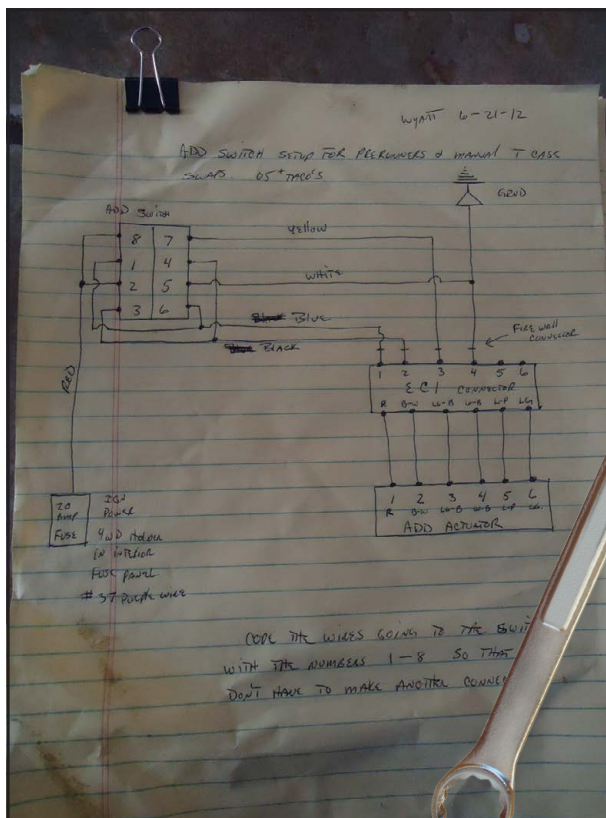 WYATT 6-21-12
ADD SWITCH SETUP FOR PRERUNNERS & MANUAL T CASE
SWAPS 05+ TACO'S
GRND
ADD SWITCH
8 7
1 4
2 5
3 6
YELLOW
WHITE
BLUE
BLACK
FIRE WALL
CONNECTOR
RED
1 2 3 4 5 6
EC1 CONNECTOR
R B-W LG-B W-B L-P LG
1 2 3 4 5 6
R B-W LG-B W-B L-P LG
ADD ACTUATOR
20
AMP
FUSE
IGN
POWER
4WD HOLDER
IN INTERIOR
FUSE PANEL
#37 PURPLE WIRE
CODE THE WIRES GOING TO THE SWIT
WITH THE NUMBERS 1-8 SO THAT
DON'T HAVE TO MAKE ANOTHER CONNE